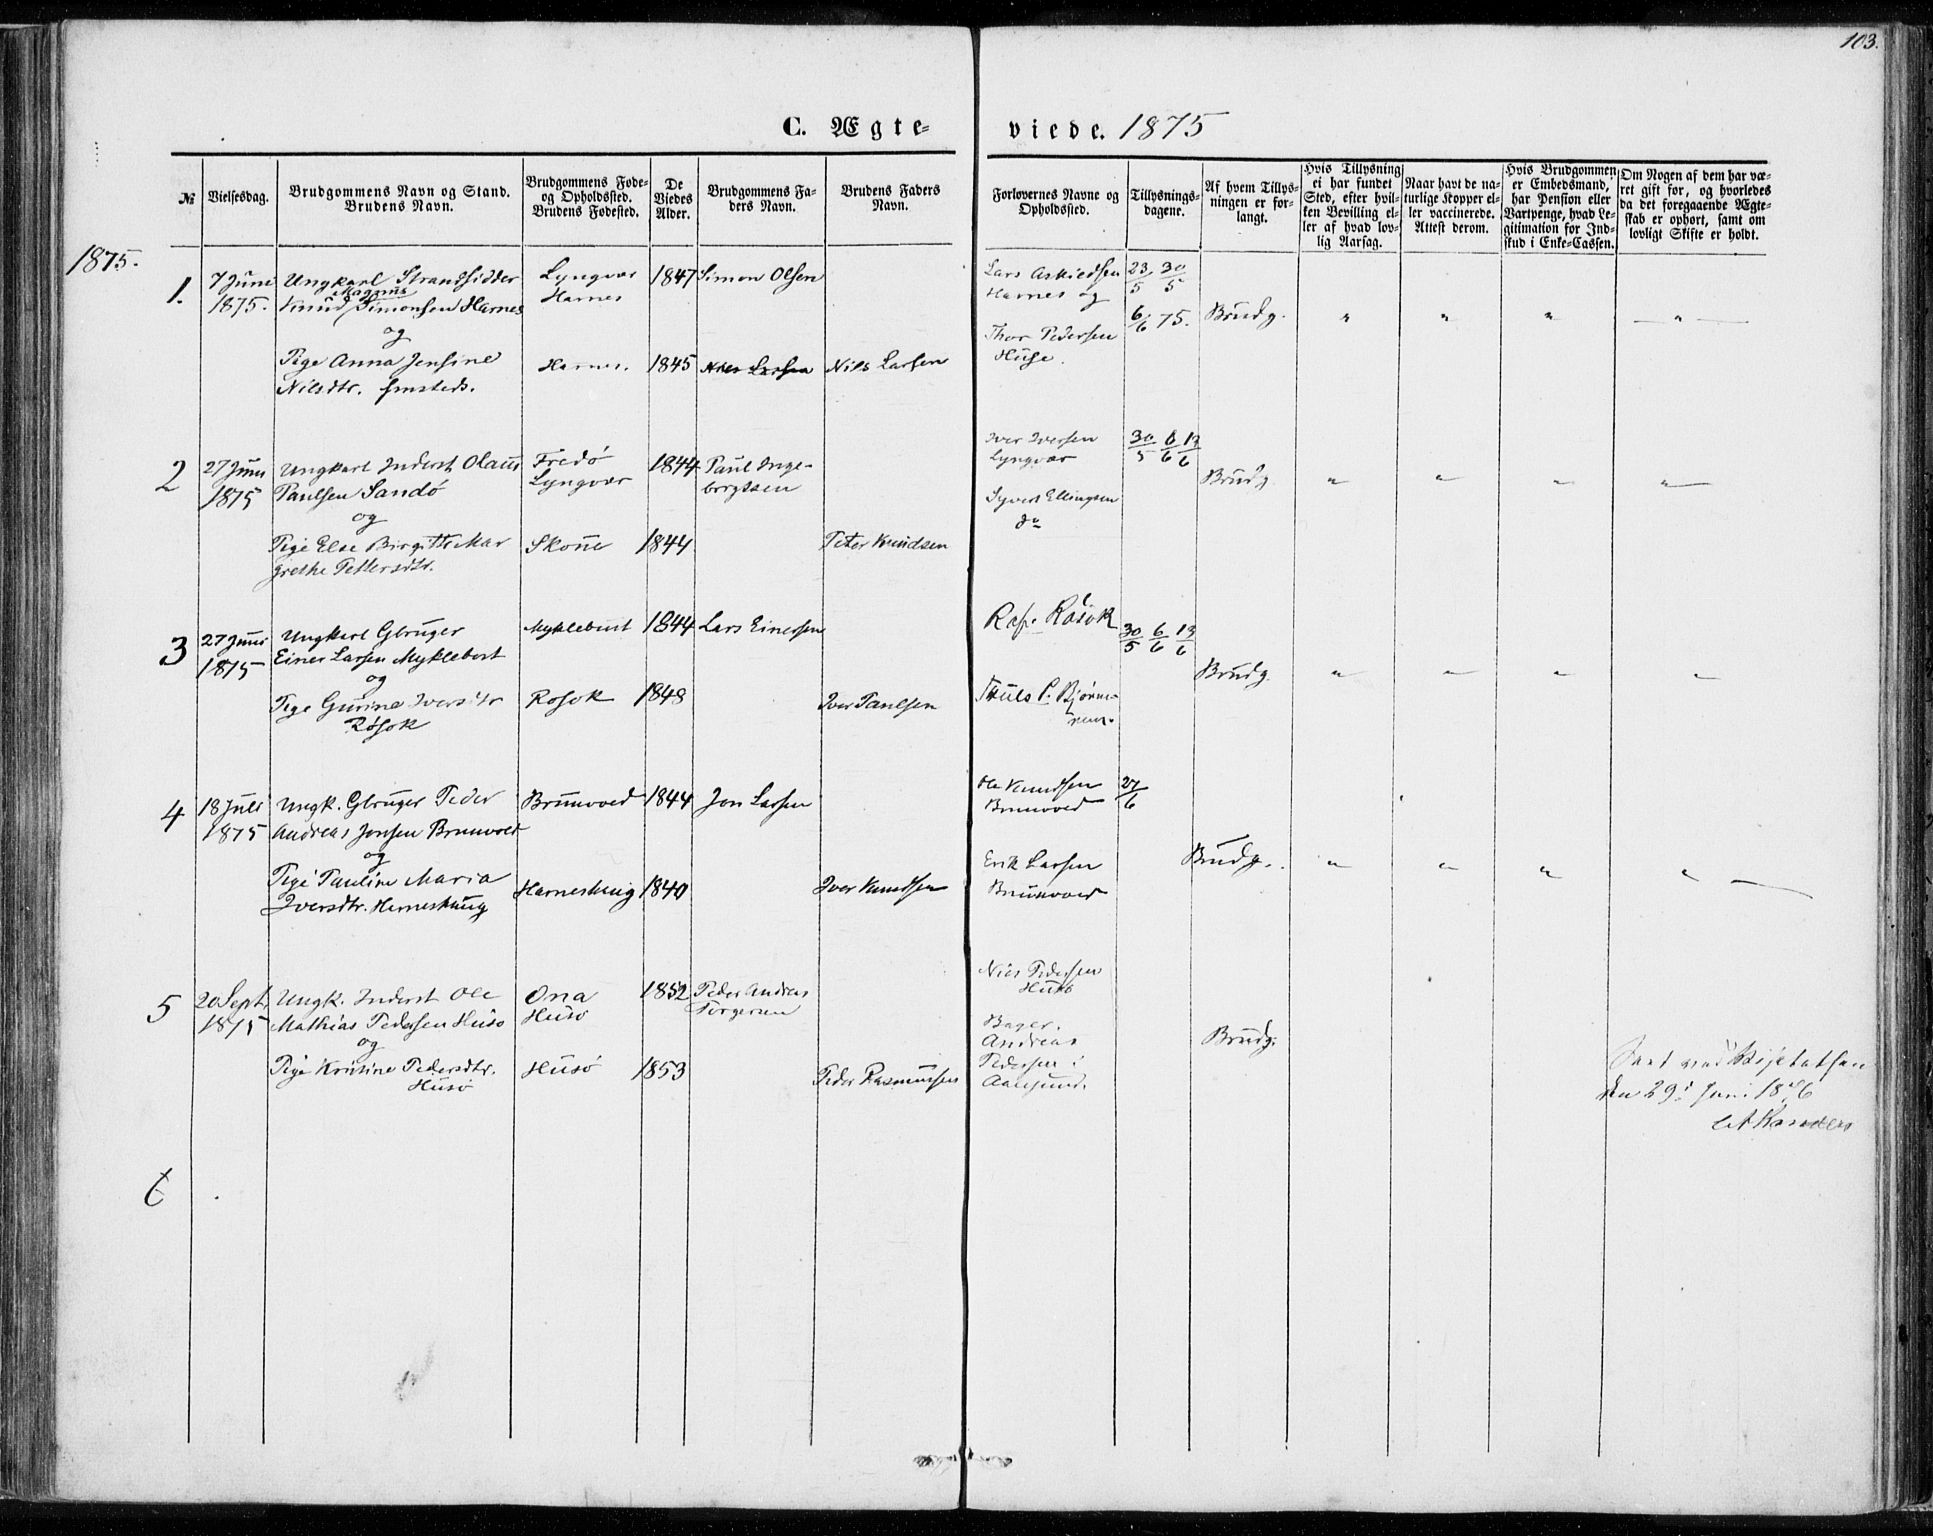 103.
C. Ægte-
viede. 1875
№
Vielsesdag.
Brudgommens Navn og Stand.
Brudens Navn.
Brudgommens Føde-
og Opholdssted.
Brudens Fødested.
De
Viedes
Alder.
Brudgommens Fa-
ders Navn.
Brudens Faders
Navn.
Forlovernes Navne og
Opholdssted.
Tillysnings-
dagene.
Af hvem Tillys-
ningen er for-
langt.
Hvis Tillysning
ei har fundet
Sted, efter hvil-
ken Bevilling el-
ler af hvad lov-
lig Aarsag.
Naar havt de na-
turlige Kopper el-
ler vaccinerede.
Attest derom.
Hvis Brudgommen
er Embedsmand,
har Pension eller
Vartpenge, hvad Le-
gitimation for Ind-
skud i Enke-Cassen.
Om Nogen af dem har væ-
ret gift før, og hvorledes
da det foregaaende Ægte-
skab er ophørt, samt om
lovligt Skifte er holdt.
1875.
1.
7 Juni
1875.
Ungkarl Strandsidder
Magnus
Knud Simonsen Harnes
og
Pige Anna Jensine
Nilsdtr.
Lyngvær
Harnes
Harnes.
1847
1845
Simon Olsen
Nils Larsen
Nils Larsen
Lars
Harnes og
Thor Pedersen
Huse.
23/5 30/5
6/6 75.
Brudg.
" " " — " —
2
27 Juni
1875
Ungkarl Inderst Olaus
Paulsen Sandø
og
Pige Else Birgitte Mar
grethe Pettersdtr.
Fredø
Lyngvær
1844
Skotne
1844
Paul Inge-
brigtsen
Peter Knudsen
Iver Iversen
Lyngvær
Syvert Ellingsen
do
30/5 6/6 13/6
Brudg.
" " " "
3
27 Juni
1875
Ungkarl Gbruger
Einer Larsen Myklebost
og
Pige Gurine Iversdtr
Røsok
Myklebust
Rosok
1844
1848
Lars Einersen
Iver Paulsen
Røsok
P. Bjørne-
30/5 6/6 13/6
Brudg.
" " " "
4
18 Juli
1875
Ungk. Gbruger Peder
Andreas Jonsen Brunvold
og
Pige Pauline Maria
Iversdtr. Harneshaug
Brunvold
Harneshaug
1844
1840
Jon Larsen
Iver Knudsen
Ole Knudsen
Brunvold
Erik Larsen
Brunvold
27/6
Brudg.
" " " "
5
20 Sept.
1875
Ungk. Inderst Ole
Mathias Pedersen Husø
og
Pige Kristine Pedersdtr.
Husø
Ona
Husø
Husø
1852
1853
Peder Andreas
Torgersen
Peder Rasmussen
Nils Pedersen
Husø
Bager.
Andreas
Pedersen i
Aalesund.
Brudg.
ved
den 29. Juni 1876
6